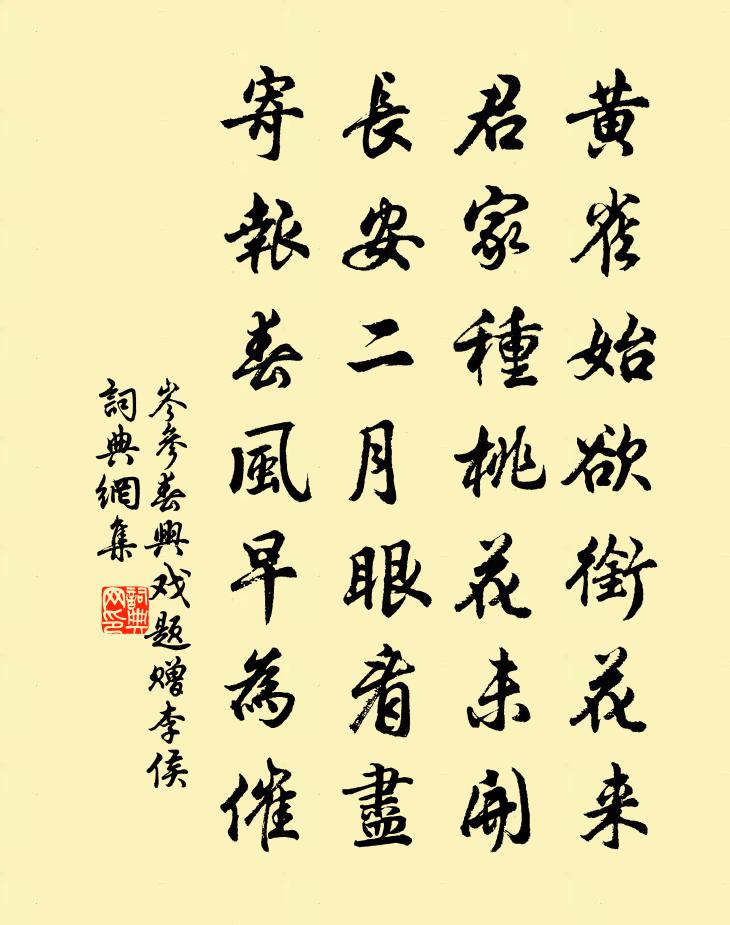 黄雀始欲銜花来
君家種桃花未開
長安二月眼看盡
寄報春風早為催
岑參春興戏题赠李侯
詞典網集
詞典网印